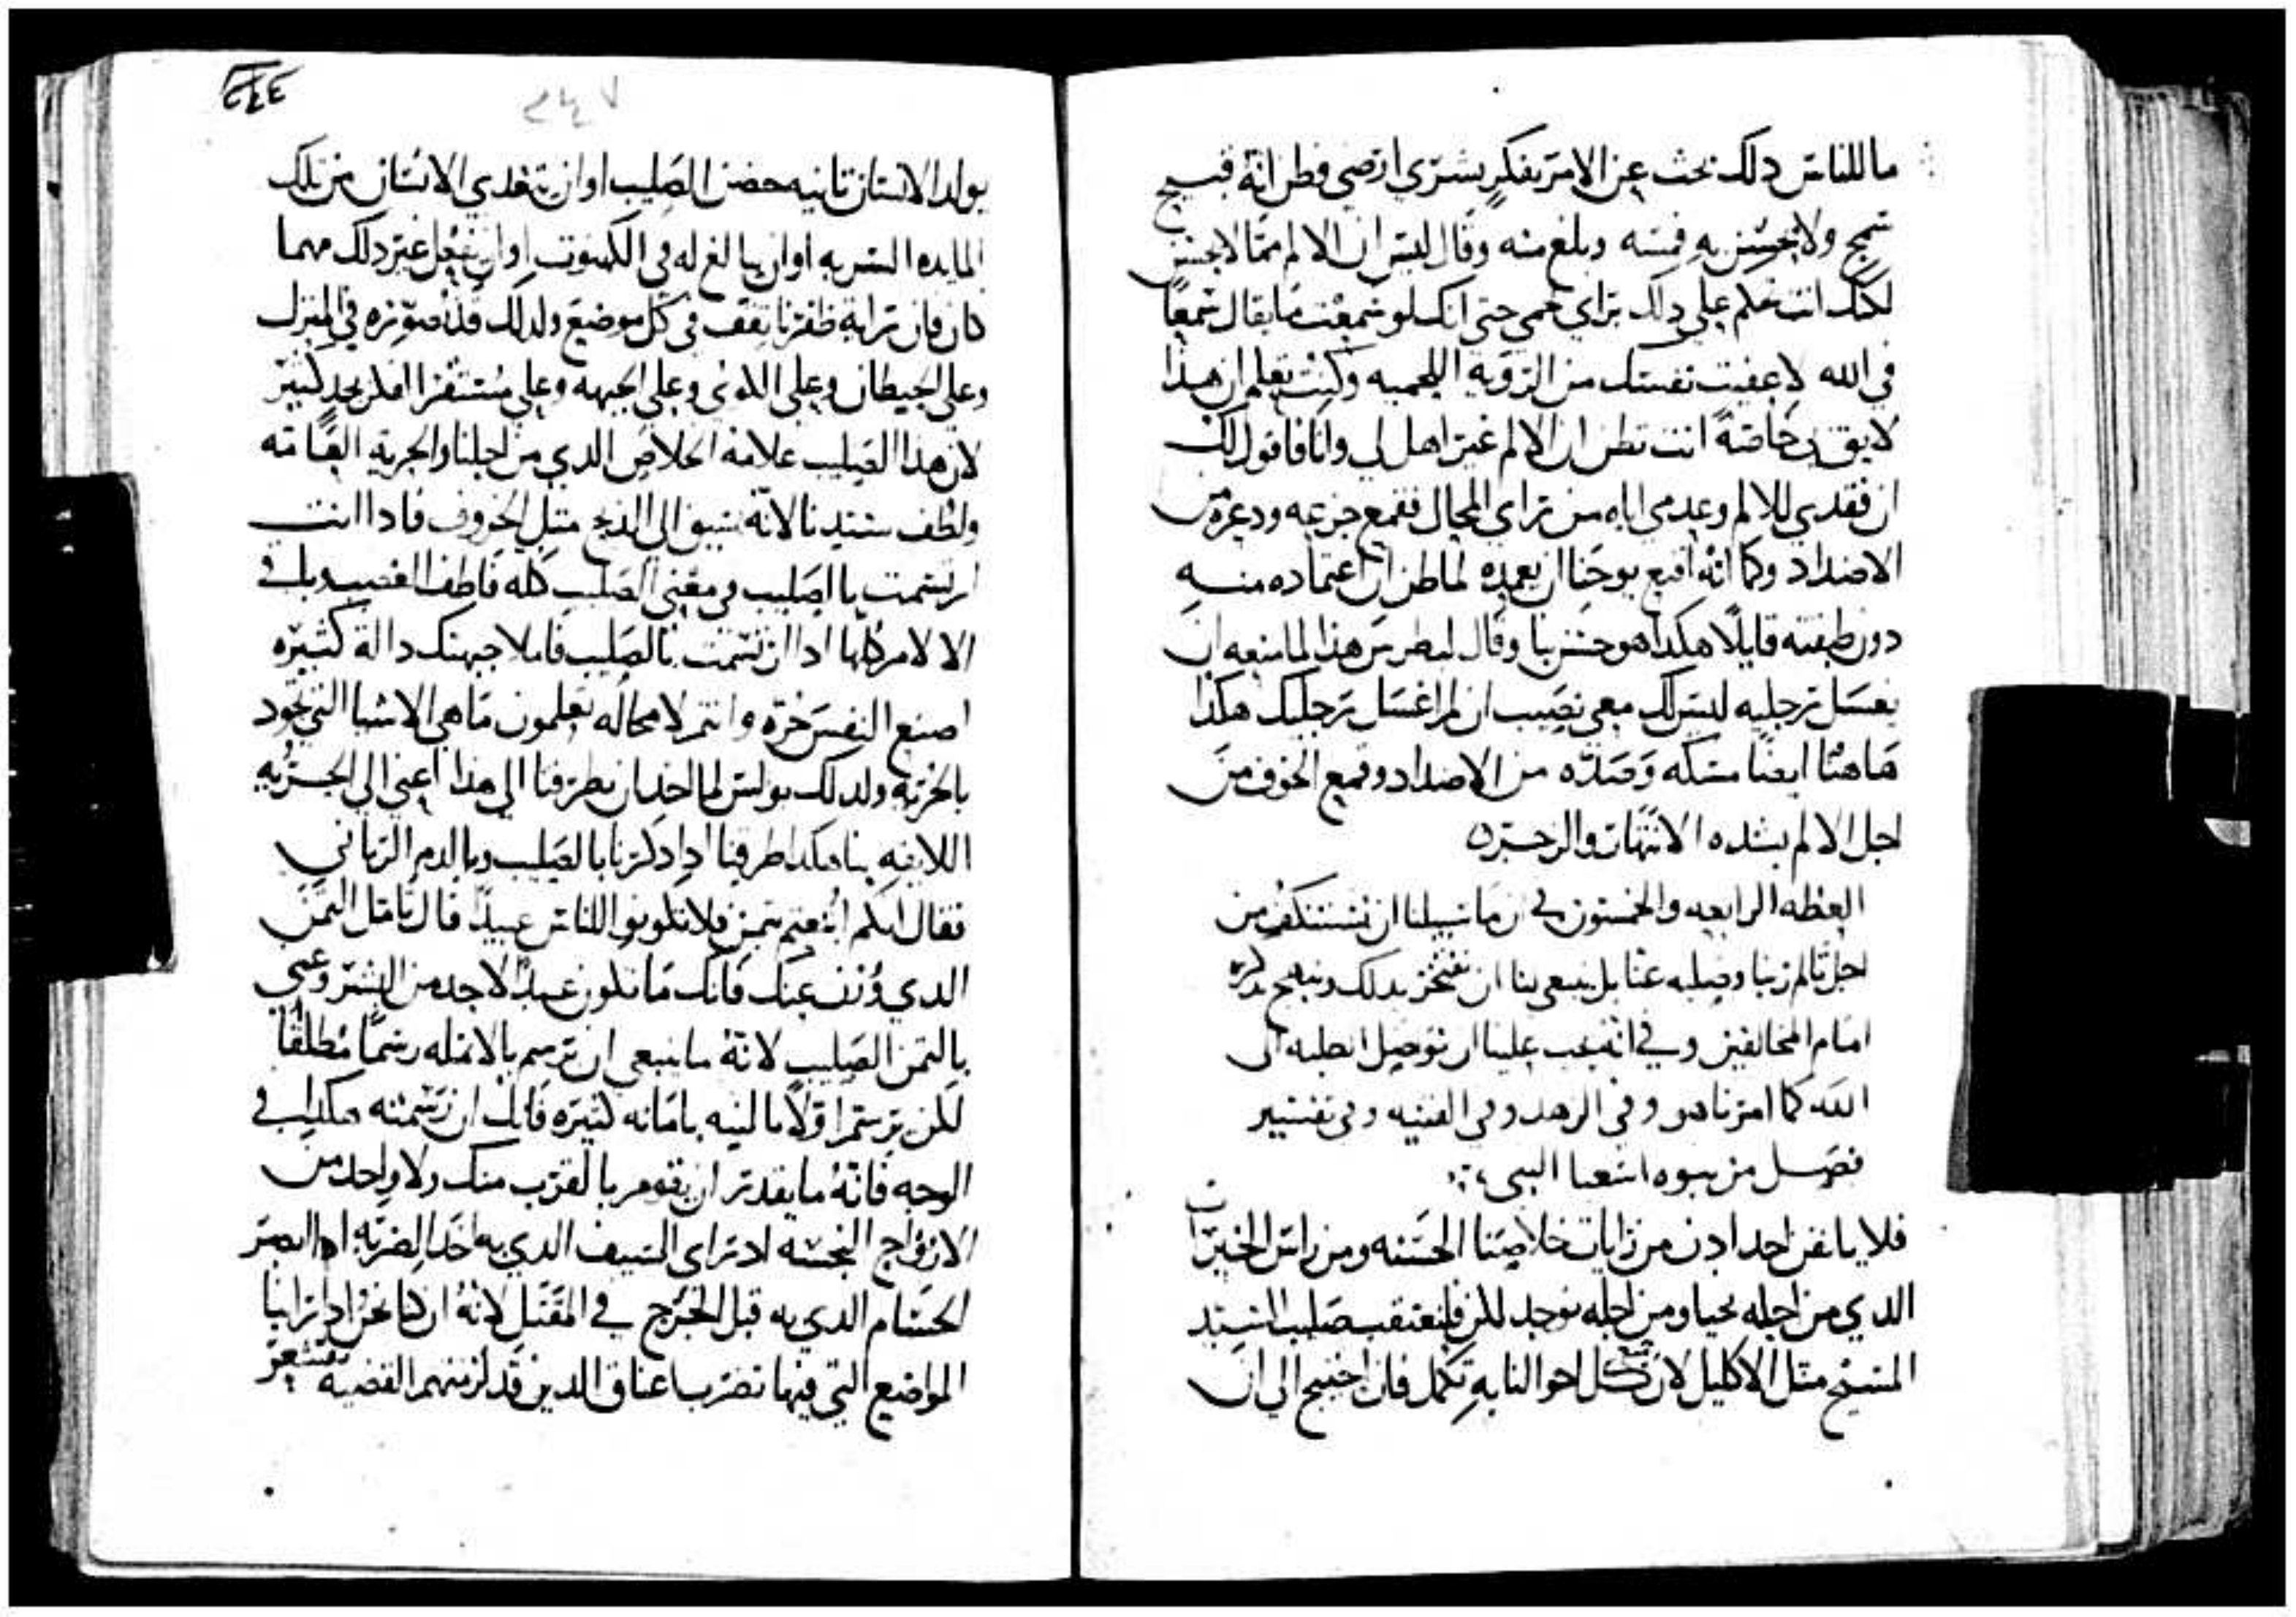 ما للناس دلك بحث عن الامر بفكرٍ بشري ارضي فظن انهُ قبيح
سمج ولا يحسن به فمسه وبلغ منه وقال ليس ان الالم ممّا لا يحسن
لكنك انت تحكم على دلك براي لحمي حتى انك لو سمعت ما يقال سمعًا
في الله لاعفيت نفسك من الرويه اللحميه وكنت تعلم ان هذا
لايق بى خاصةً انت تظن ان الالم غير اهل لي وانا فاقول لك
ان فقدي للالم وعدمي اياه من راي المحال فقمع جزعه ودعره من
الاضداد وكما انه اقنع يوحنا ان يعمده لما ظن ان اعتماده منه
دون طبقته قايلًا هكدا هو حسن بنا وقال لبطرس هذا لما منعه ان
يغسل رجليه ليس لك معي نصيب ان لم اغسل رجليك هكدا
هاهنا ايضًا مسكه وصدّه من الاضداد وقمع الخوف من
اجل الالم بشده الانتهار والزجر ٥
العظه الرابعه والخمسون في ان ما سبيلنا ان نستنكف من
اجل تالم ربنا وصلبه عنا بل ينبغي بنا ان نفتخر بدلك ونبتهج بدكره
امام المخالفين وفي انه يجب علينا ان نوصل الطلبه الى
الله كما امرنا هو وفي الزهد وفي القنيه وفي تفسير
فصل من نبوه اشعيا النبي
فلا يانفن احد ادن من رايات خلاصنا الحسنه ومن راس الخيرات
الدي من اجله نحيا ومن اجله نوجد لكن فلنعتقب صليب السيد
المسيح مثل الاكليل لان كل احوالنا به تكمل فان احتيج الي ان
٢٤٤
٢٤٧
يولد الانسان تانيه حضر الصليب او ان يتغدي الانسان من تلك
المايده السريه او ان يبالغ له في الكهنوت او ان يفعل غير دلك مهما
كان فان رايه ظفرنا تقف في كل موضع ولدلك قد نصوره في المنزل
وعلي الحيطان وعلى الكوى وعلى الجبهه وعلي مستقر افكار بجد كتير
لان هذا الصليب علامه الخلاص الدي من اجلنا والحريه العامه
ولطف سيدنا لانه سيق الى الدبح متل الخروف فادا انت
ارتسمت بالصليب في معنى الصليب كله فاطف الغضب وباقى
الالام كلها ادا ارتسمت بالصليب فاملا جبهتك دالة كثيره
اصنع النفس حره وانتم لا محاله تعلمون ماهي الاشيا التي تجود
بالحريه ولدلك بولس لما اخد ان يطرقنا الي هذا اعني الي الحريه
اللايقه بنا هكدا طرقنا اد ادكرنا بالصليب وبالدم الرباني
فقال انكم ابتعتم بتمن فلا تكونوا للناس عبيدًا قال تامل التمن
الدي وُزن عنك فانك ما تكون عبدًا لاحد من البشر وعنى
بالتمن الصليب لانهُ ما ينبغي ان ترسم بالانمله رسمًا مطلقًا
لكن ترسم اولًا بالنيه بامانه كتيره فانك ان رسمته هكدا في
الوجه فانهُ ما يقدر ان يقوم بالقرب منك ولا واحد من
الارواح النجسه اد راى السيف الدي به اخد الضربه اد ابصر
الحسام الدي به قبل الجرح في المقتل لانهُ ان كنا نحن ادا راينا
المواضع التي فيها تضرب اعناق الدين قد لزمتهم القضيه نقشعر